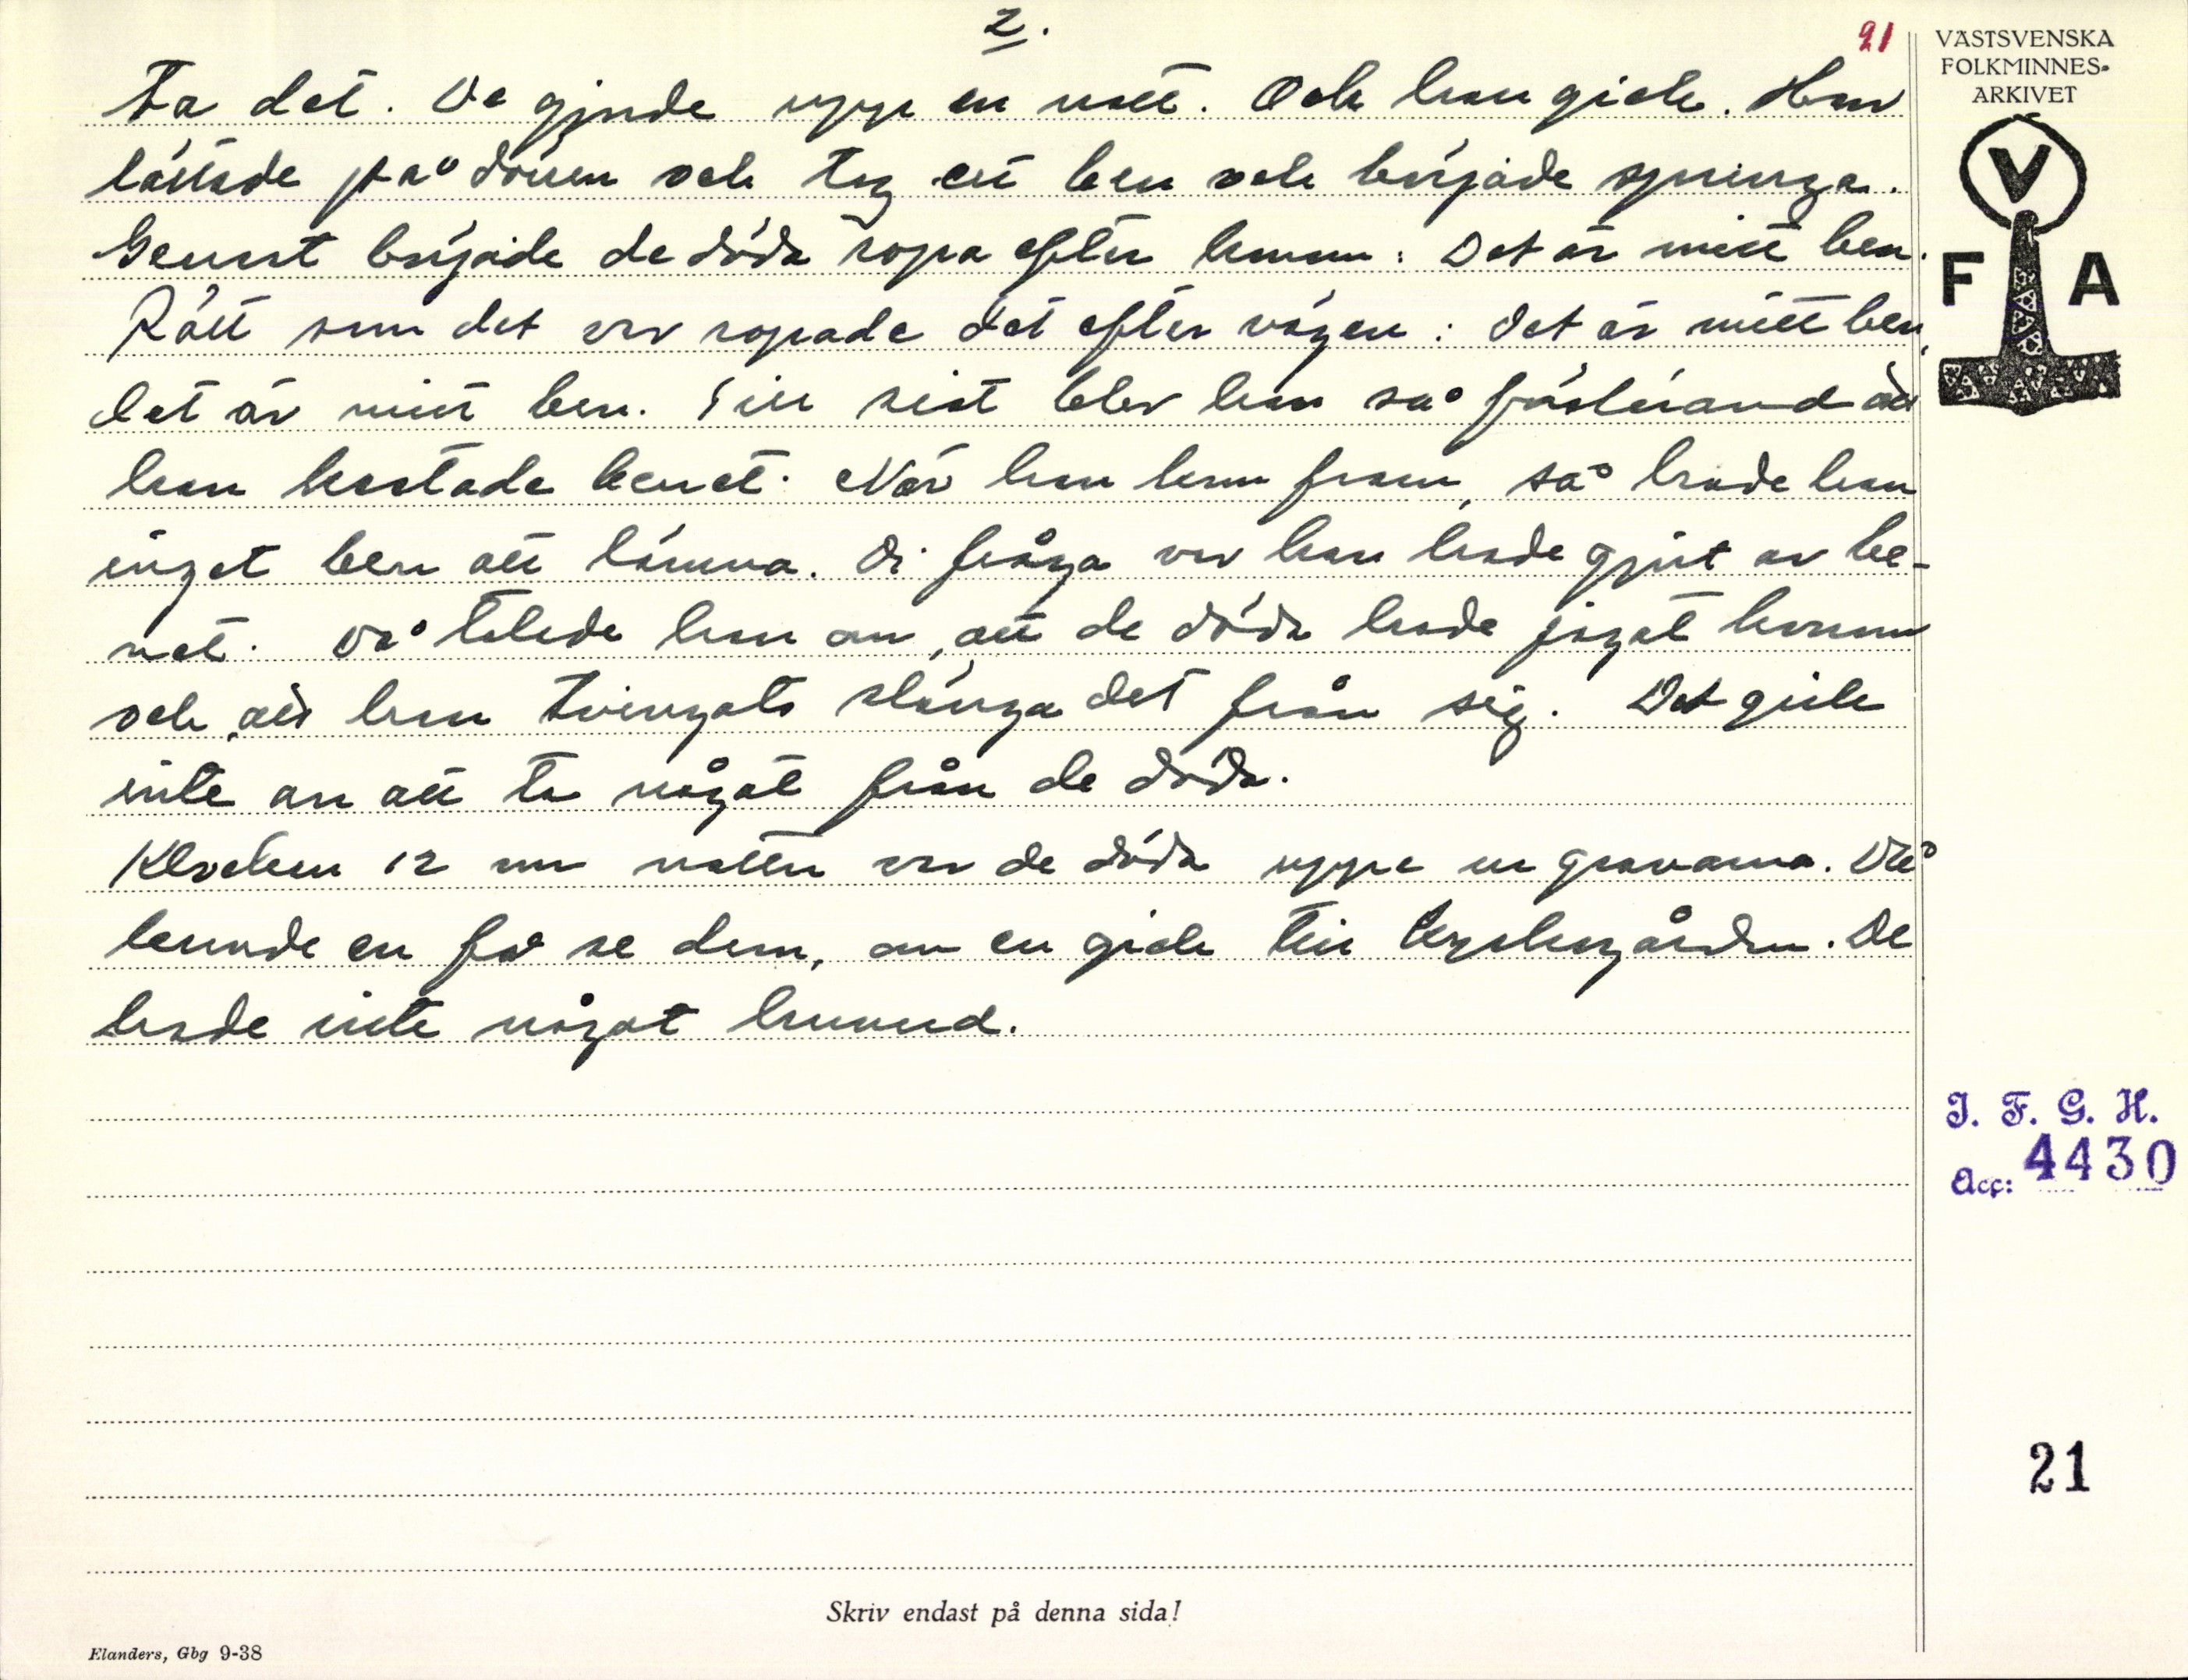 2.
21
VÄSTSVENSKA
FOLKMINNES-
ARKIVET
V
F A
ta det. De gjorde upp en natt. Och han gick. Han
lättade på dörren och tog ett ben och började springa.
Genast började de döda ropa efter honom: Det är mitt ben.
Rätt som det var ropade det efter vägen: Det är mitt ben,
det är mitt ben. Till sist blev han så att
han kastade benet. När han kom fram, så hade han
inget ben att lämna. Di fråga var han hade gjort av be-
net. Då talade han om, att de döda hade jagat honom
och, att han tvingats slänga det från sig. Det gick
inte an att ta något från de döda.
Klockan 12 om natten var de döda uppe ur gravarna. Då
kunde en få se dem, om en gick till kyrkogården. De
hade inte något huvud.
I. F. G. H.
Acc: 4430
21
Skriv endast på denna sida!
Elanders, Gbg 9-38